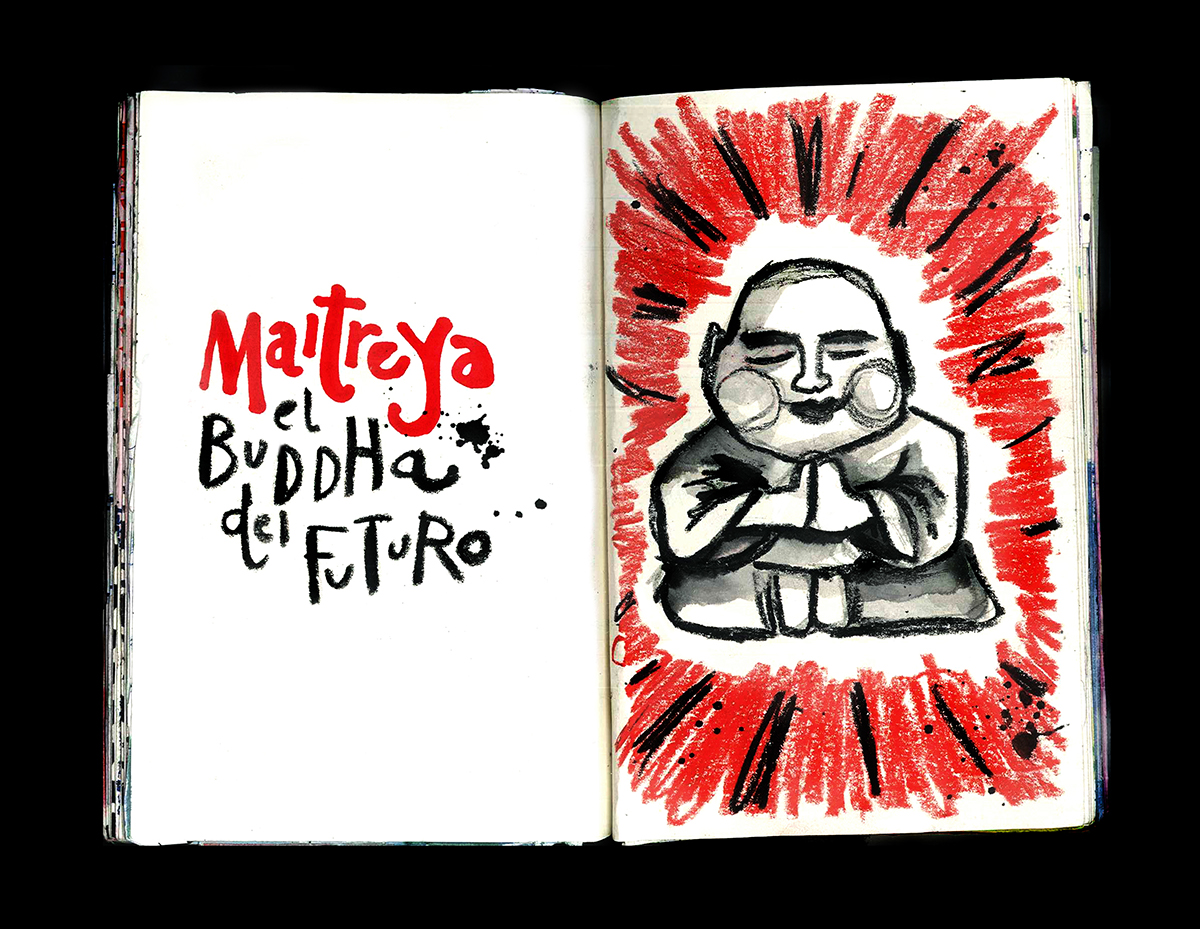 Maitreya
el
BuDDHa
del FuTuRo